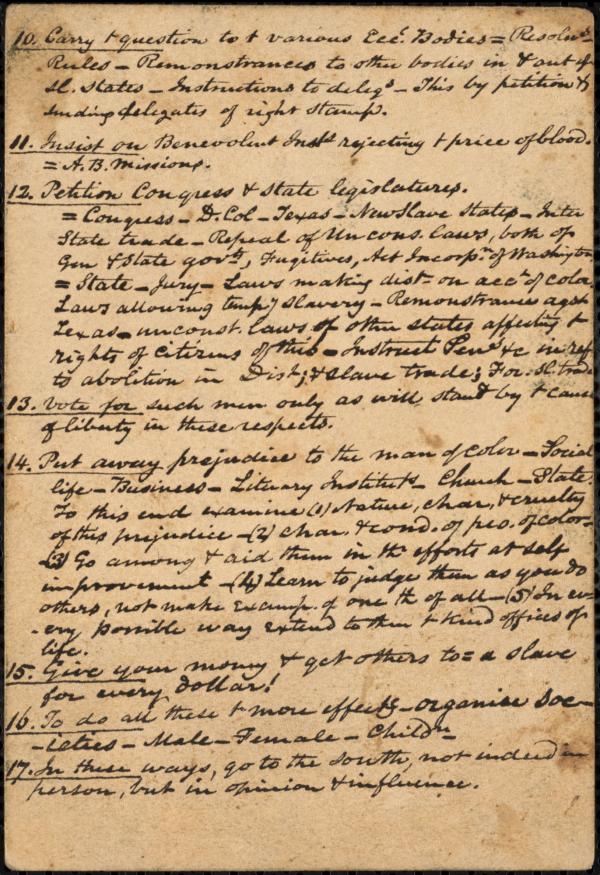 10. Carry + question to + various Ecc. Bodies = Resoluns
Rules - Remonstrances to other bodies in & out of
sl. States - Instructions to delegs - This by petition &
sending delegates of right stamp.
11. Insist on Benevolent Insts rejecting + price of blood.
= A. B. Missions.
12. Petition Congress & State legislatures.
= Congress - D. Col - Texas - New Slave States - Inter
State trade - Repeal of Uncons. Laws, both of
Gen & State govts, Fugitives, Act Incorpn of Washington
= State - Jury - Laws making distn on acct of color
Laws allowing tempy slavery - Remonstrances agst
Texas - unconst. laws of other states affecting +
rights of citizens of this - Instruct &c in ref
to abolition in Dist; & slave trade; For. sl. trade
13. Vote for such men only as will stand by + cause
of liberty in these respects.
14. Put away prejudice to the man of color - Social
life - Business - Literary Instituts - Church - State.
To this end examine (1) Nature, char, & cruelty
of this prejudice - (2) Char. & cond. of peo. of color -
(3) Go among & aid them in thr efforts at self
improvement - (4) Learn to judge them as you do
others, not make examp. of one th of all - (5) In ev-
-ery possible way extend to them + kind offices of
life.
15. Give your money & get others to = a slave
for every dollar!
16. To do all these + more effectly - organise Soc-
-ieties - Male - Female - Childn -
17. In these ways, go to the south, not indeed in
person, but in opinion & influence.